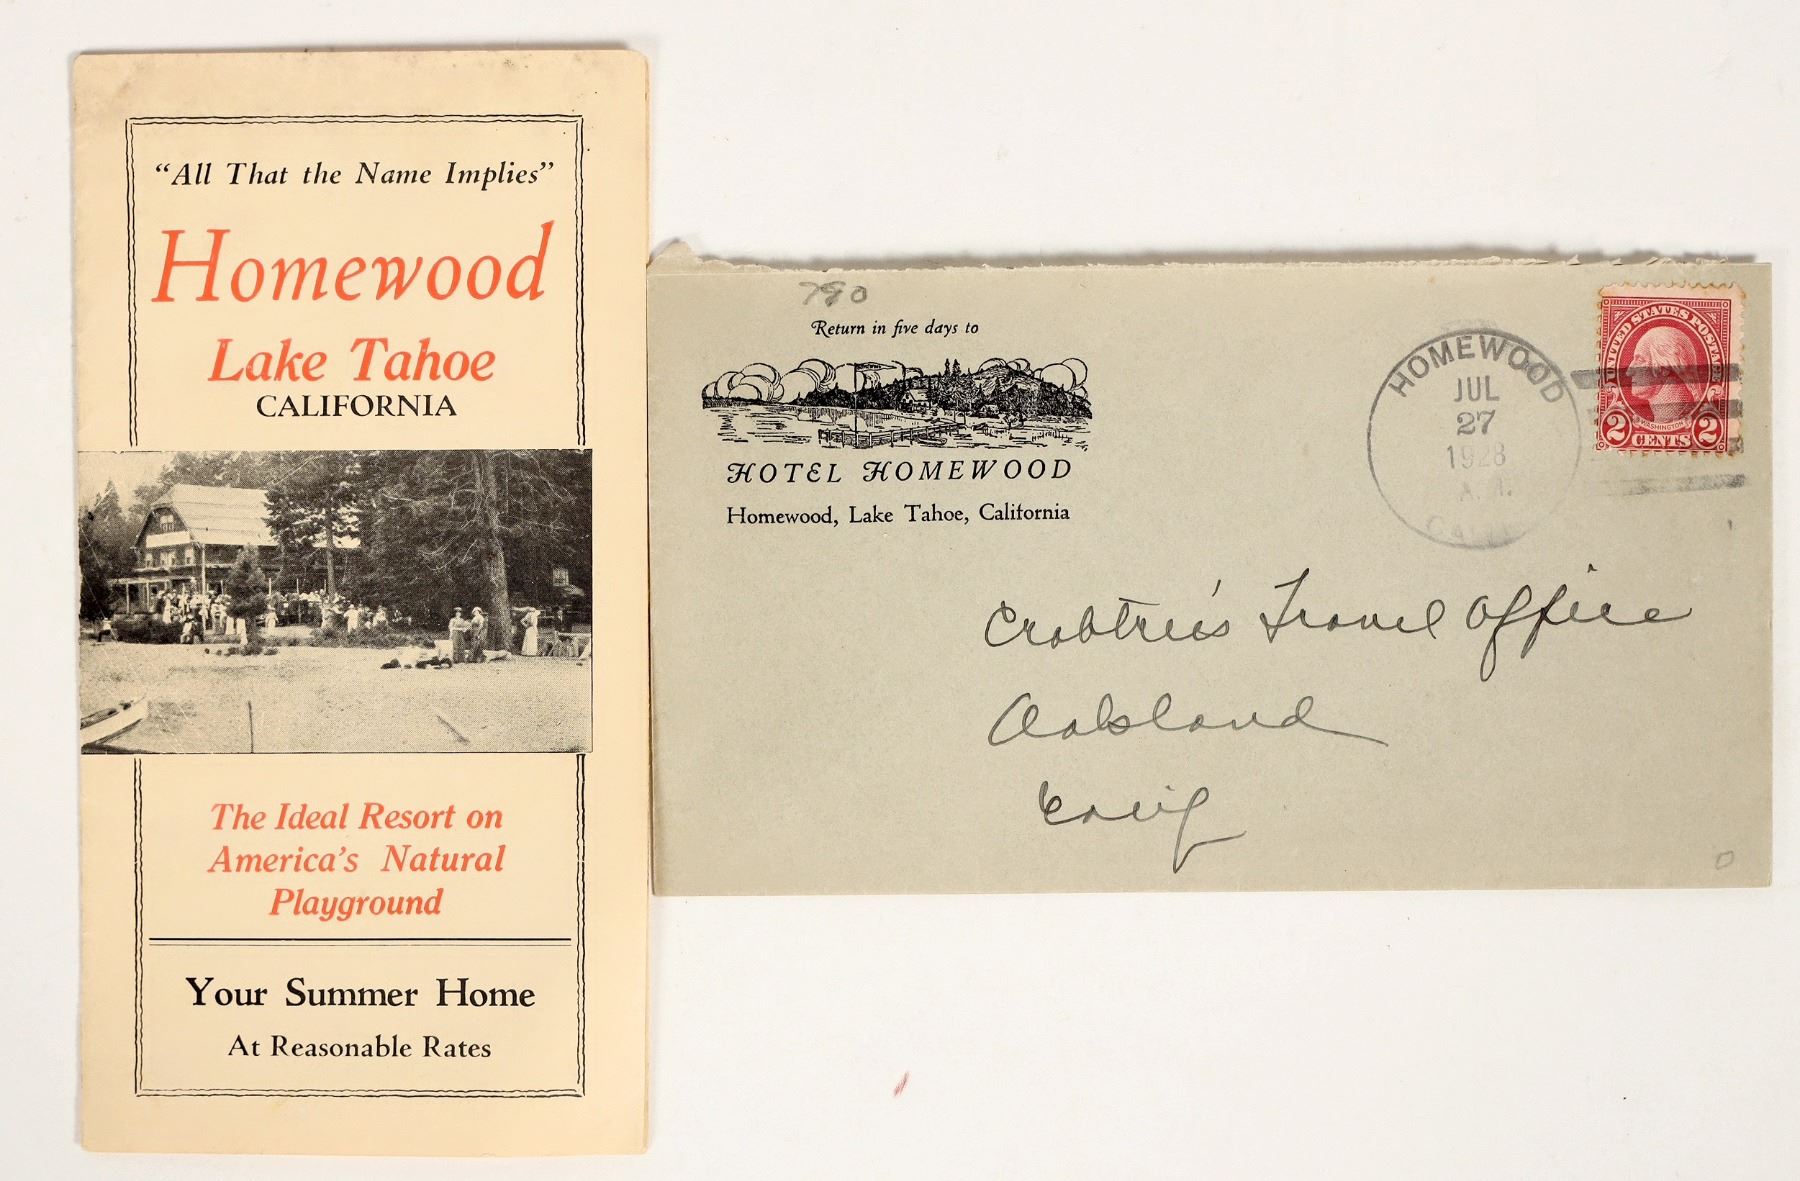 “All That the Name Implies”
Homewood
Lake Tahoe
CALIFORNIA
The Ideal Resort on
America’s Natural
Playground
Your Summer Home
At Reasonable Rates
790
Return in five days to
HOTEL HOMEWOOD
Homewood, Lake Tahoe, California
HOMEWOOD
JUL
27
1928
A.M.
CALIF
UNITED STATES POSTAGE
WASHINGTON
2 CENTS 2
Crabtree's Travel Office
Oakland
Calif